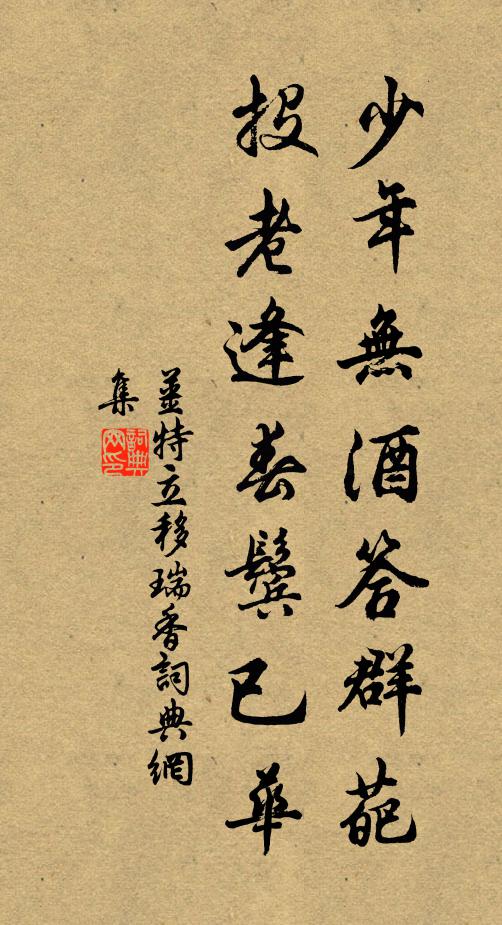 少年無酒答群葩
投老逢春鬢已華
姜特立移瑞香詞典網
集
詞典
网印